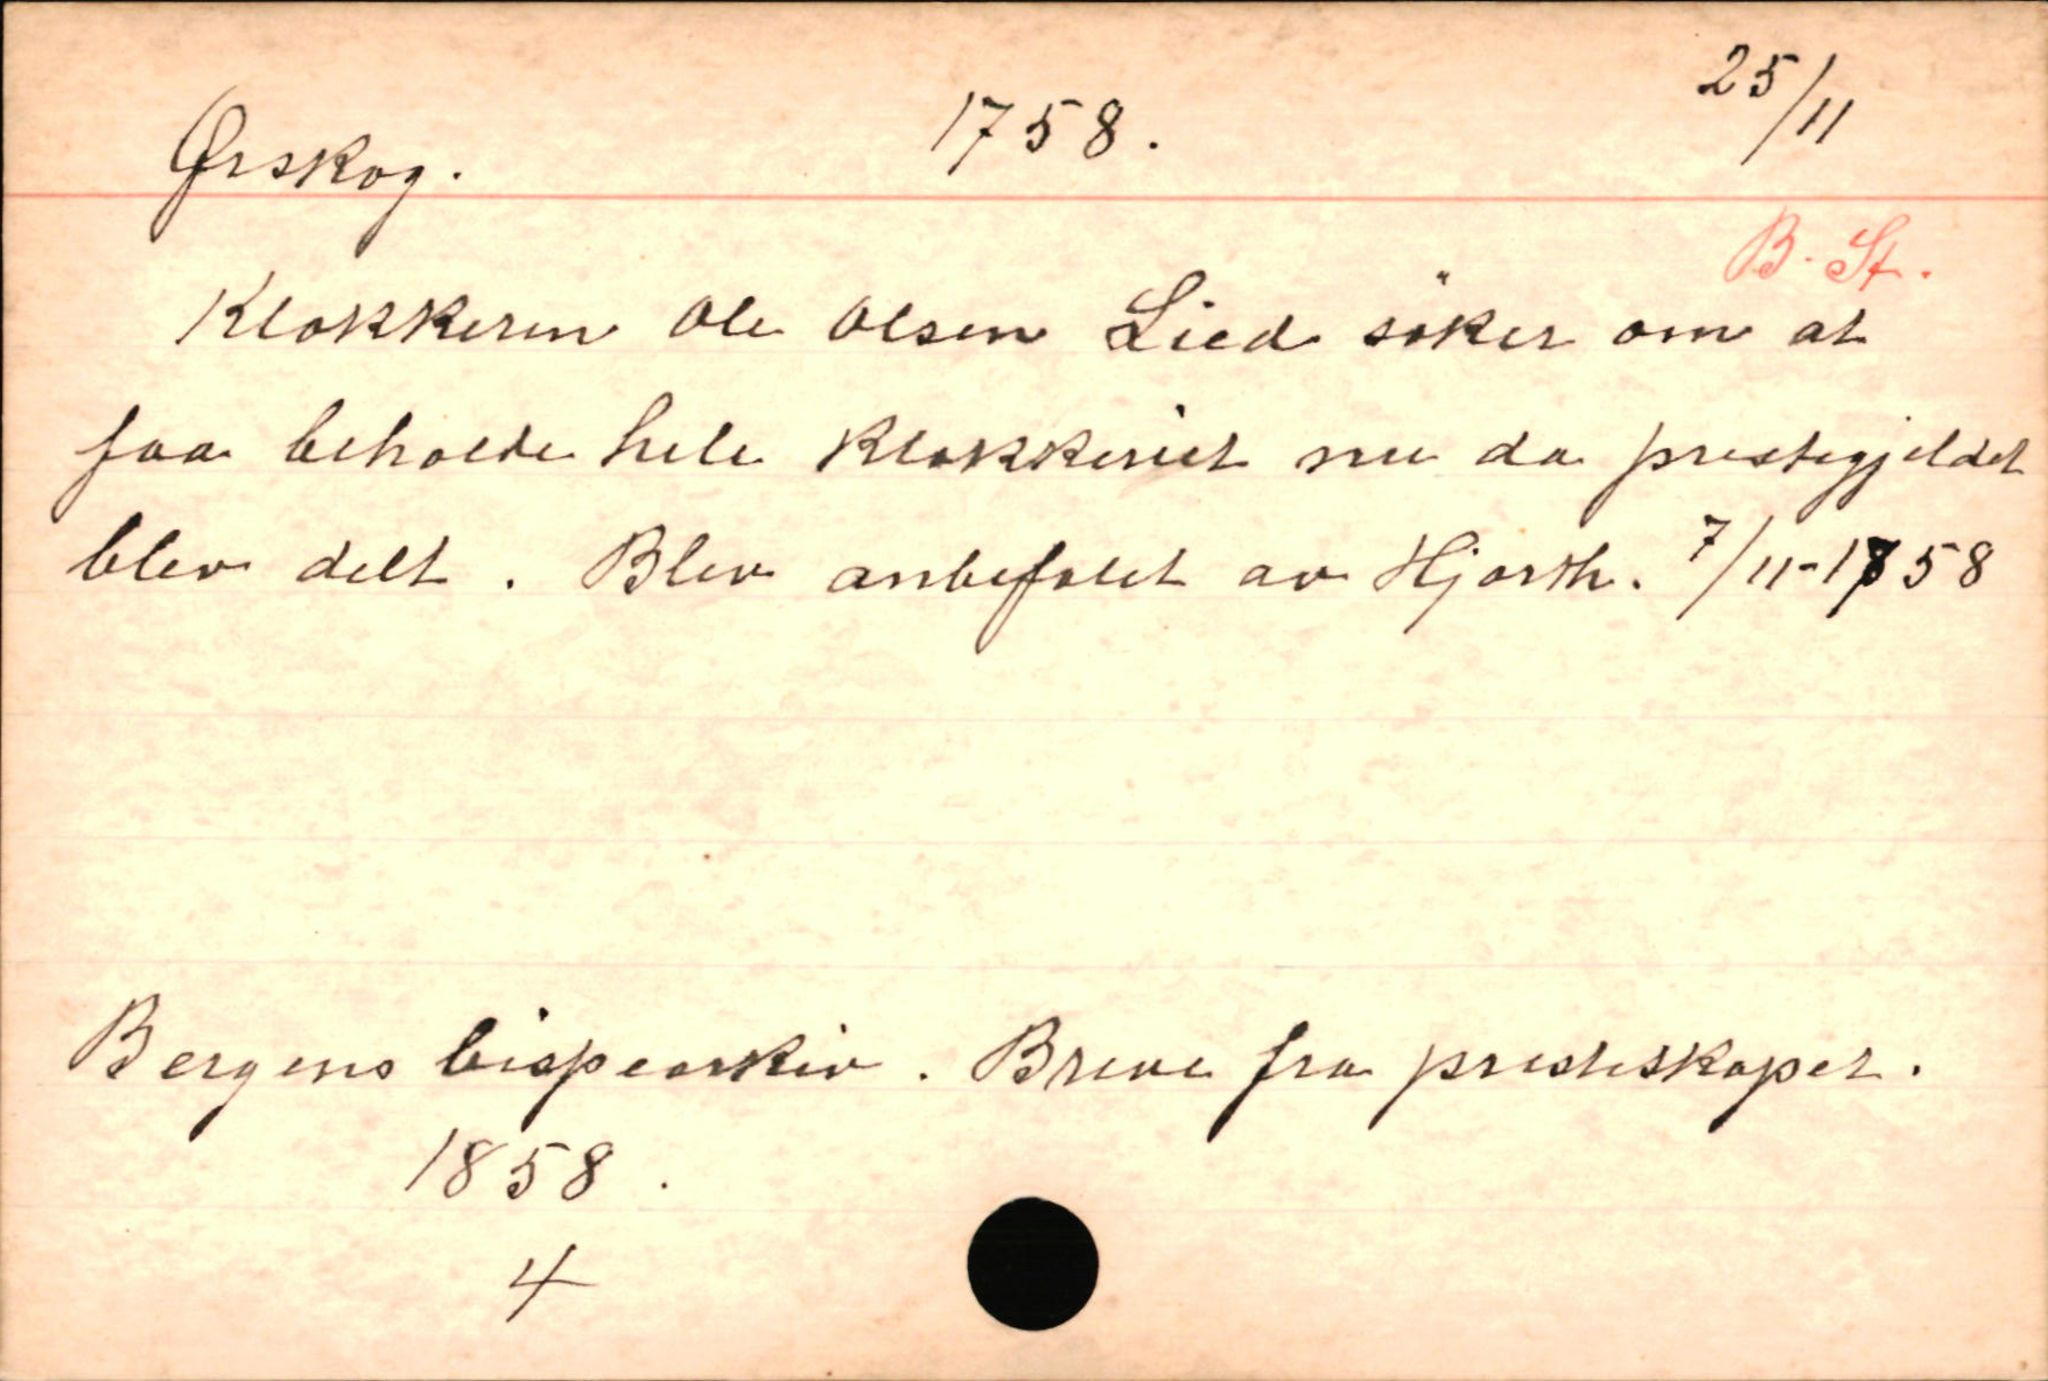 Ørskog. 1758. 25/11
B. St.
Klokkeren Ole Olsen Lied söker om at
faa beholde hele klokkeriet nu da prestegjeldet
blev delt. Blev anbefalet av Hjorth. 7/11-1758
Bergens bispearkiv. Breve fra presteskapet.
1858.
4